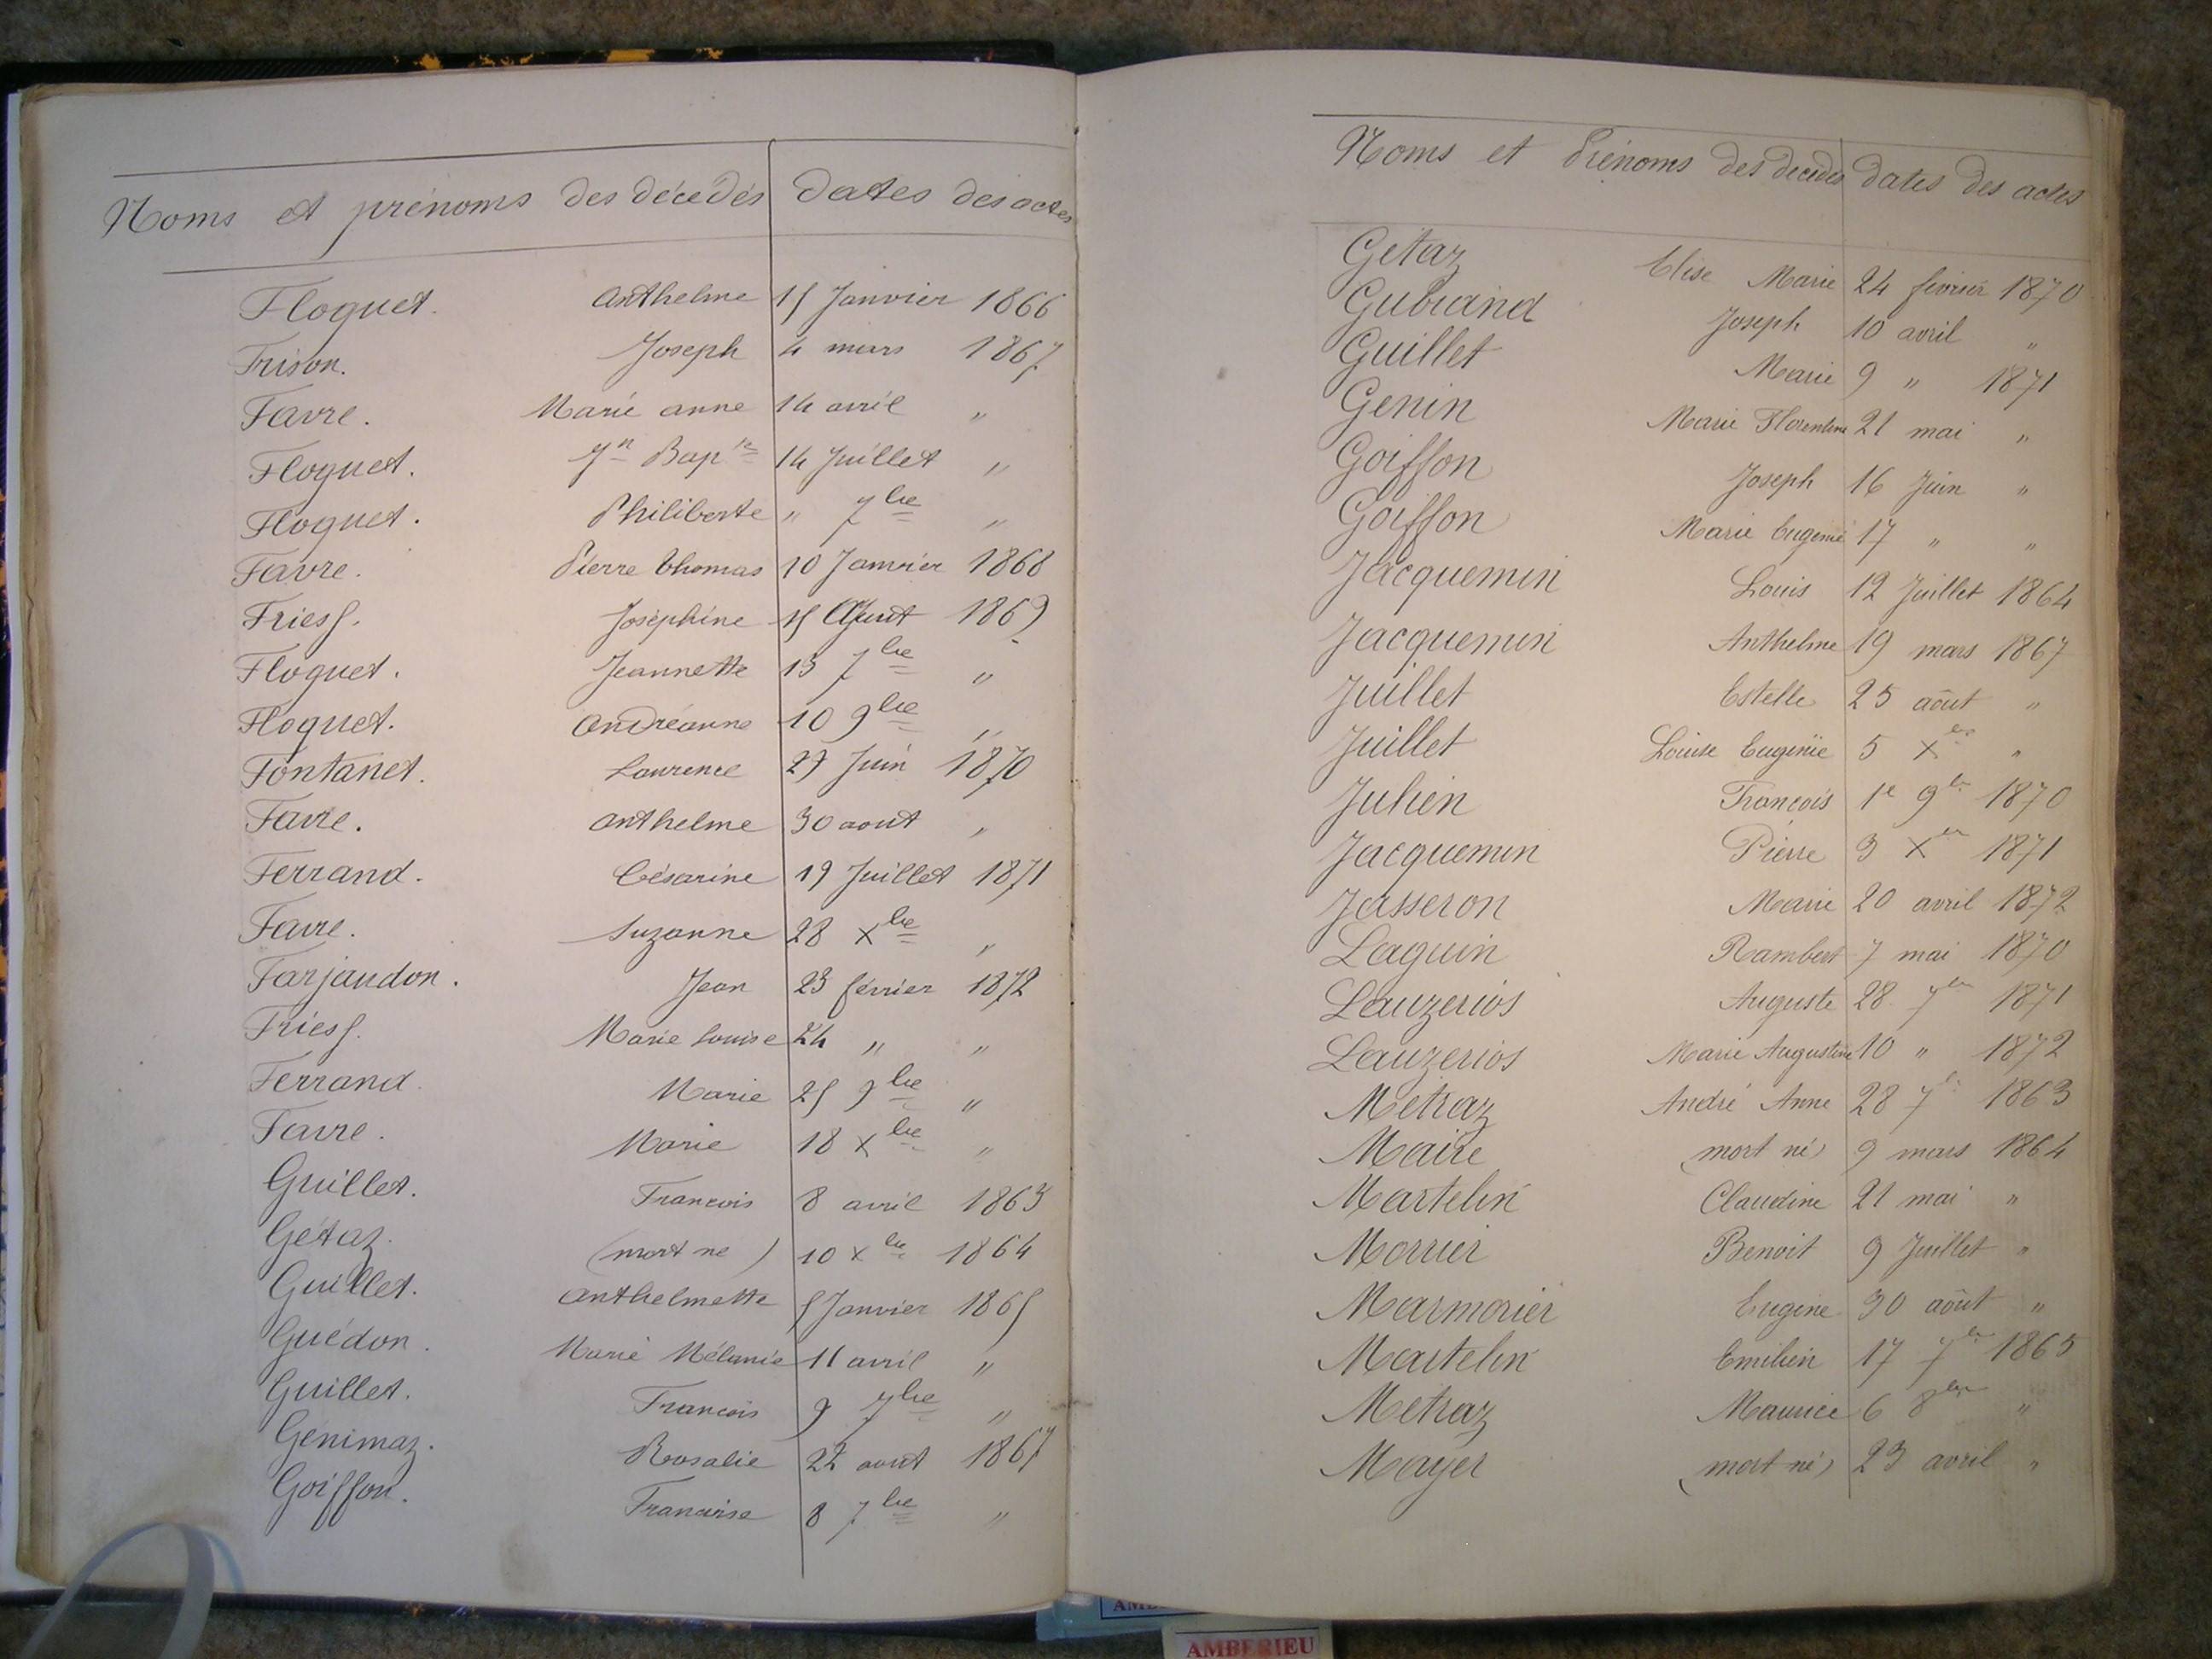 Noms et prénoms des décédés dates des actes
Floquet. Anthelme 15 Janvier 1866
Frison. Joseph 4 mars 1867
Favre. Marie anne 14 avril "
Floquet. Jn Bapte 14 Juillet "
Floquet. Philiberte " 7bre "
Favre. Pierre Thomas 10 Janvier 1868
Friess. Joséphine 15 Aout 1869
Floquet. Jeannette 13 7bre "
Floquet. Andréanne 10 9bre "
Fontanet. Laurence 27 Juin 1870
Favre. Anthelme 30 aout "
Ferrand. Césarine 19 Juillet 1871
Favre. Suzanne 28 Xbre "
Farjaudon. Jean 23 février 1872
Friess. Marie Louise 24 " "
Ferrand. Marie 25 9bre "
Favre. Marie 18 Xbre "
Guillet. Francois 8 avril 1863
Gétaz. (mort ne) 10 Xbre 1864
Guillet. Anthelmette 5 Janvier 1865
Guédon. Marie Mélanie 11 avril "
Guillet. Francois 9 7bre "
Génimaz. Rosalie 22 aout 1867
Goiffon. Francoise 8 7bre "
Noms et Prénoms des décédés dates des actes
Getaz Elise Marie 24 février 1870
Gubrand Joseph 10 avril "
Guillet Marie 9 " 1871
Genin Marie Florentine 21 mai "
Goiffon Joseph 16 Juin "
Goiffon Marie Eugenie 17 " "
Jacquemin Louis 12 Juillet 1864
Jacquemin Anthelme 19 mars 1867
Juillet Estelle 25 août "
Juillet Louise Eugenie 5 Xbre "
Julien François 1e 9bre 1870
Jacquemin Pierre 3 Xbre 1871
Jasseron Marie 20 avril 1872
Laguin Rambert 7 mai 1870
Lauzerios Auguste 28 7bre 1871
Lauzerios Marie Augustine 10 " 1872
Metraz André Anne 28 7bre 1863
Maire (mort né) 9 mars 1864
Martelin Claudine 21 mai "
Morrier Benoit 9 Juillet "
Marmorier Eugene 30 août "
Martelin Emilien 17 7bre 1865
Metraz Maurice 6 8bre "
Mayer (mort né) 23 avril "
AMBERIEU